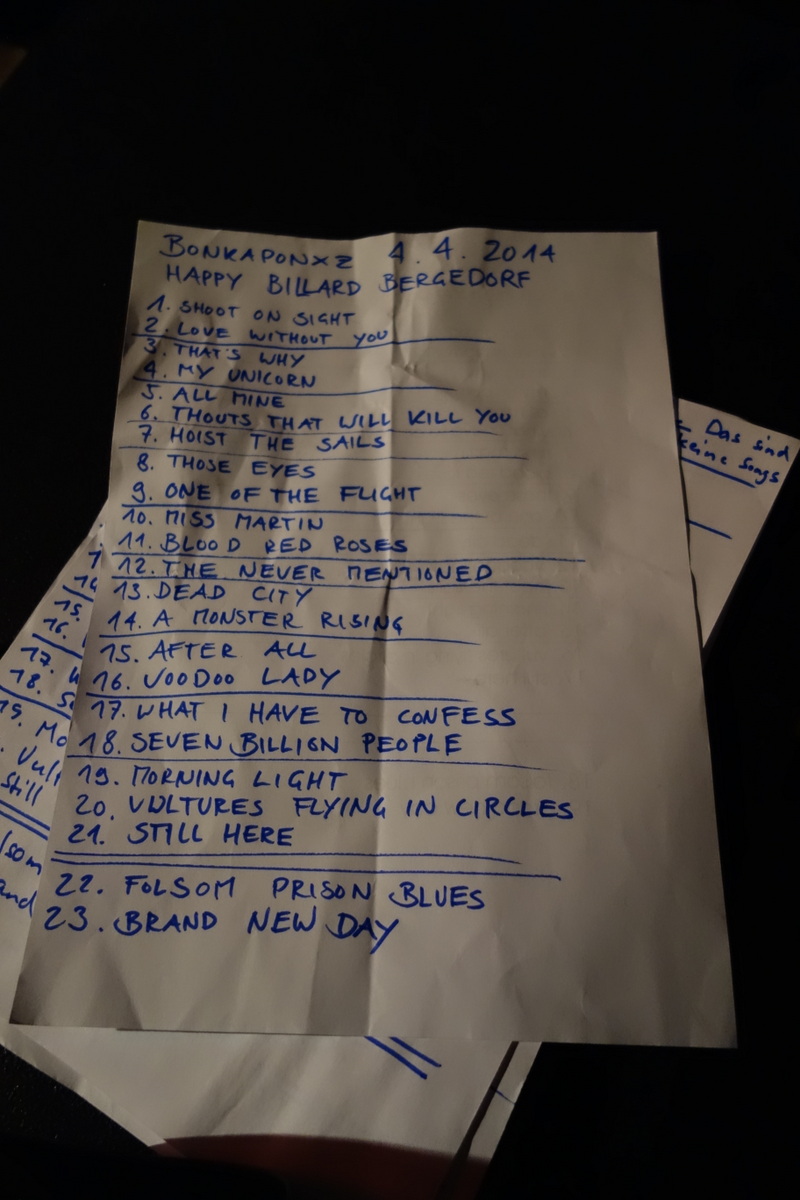 BONKAPONXZ 4.4.2014
HAPPY BILLARD BERGEDORF
1. SHOOT ON SIGHT
2. LOVE WITHOUT YOU
3. THAT'S WHY
4. MY UNICORN
5. ALL MINE
6. THOUTS THAT WILL KILL YOU
7. HOIST THE SAILS
8. THOSE EYES
9. ONE OF THE FLIGHT
10. MISS MARTIN
11. BLOOD RED ROSES
12. THE NEVER MENTIONED
13. DEAD CITY
14. A MONSTER RISING
15. AFTER ALL
16. VOODOO LADY
17. WHAT I HAVE TO CONFESS
18. SEVEN BILLION PEOPLE
19. MORNING LIGHT
20. VULTURES FLYING IN CIRCLES
21. STILL HERE
22. FOLSOM PRISON BLUES
23. BRAND NEW DAY
Das sind
keine Songs
15.
16.
17.
18.
19. Mo
Vult
Still